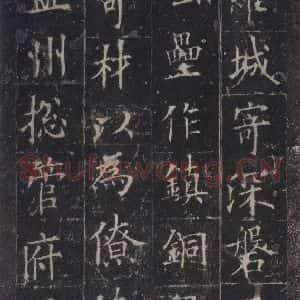 維城寄深磐
壘作鎮銅
奇材以為僚
益州揔管府
Shufawang.CN